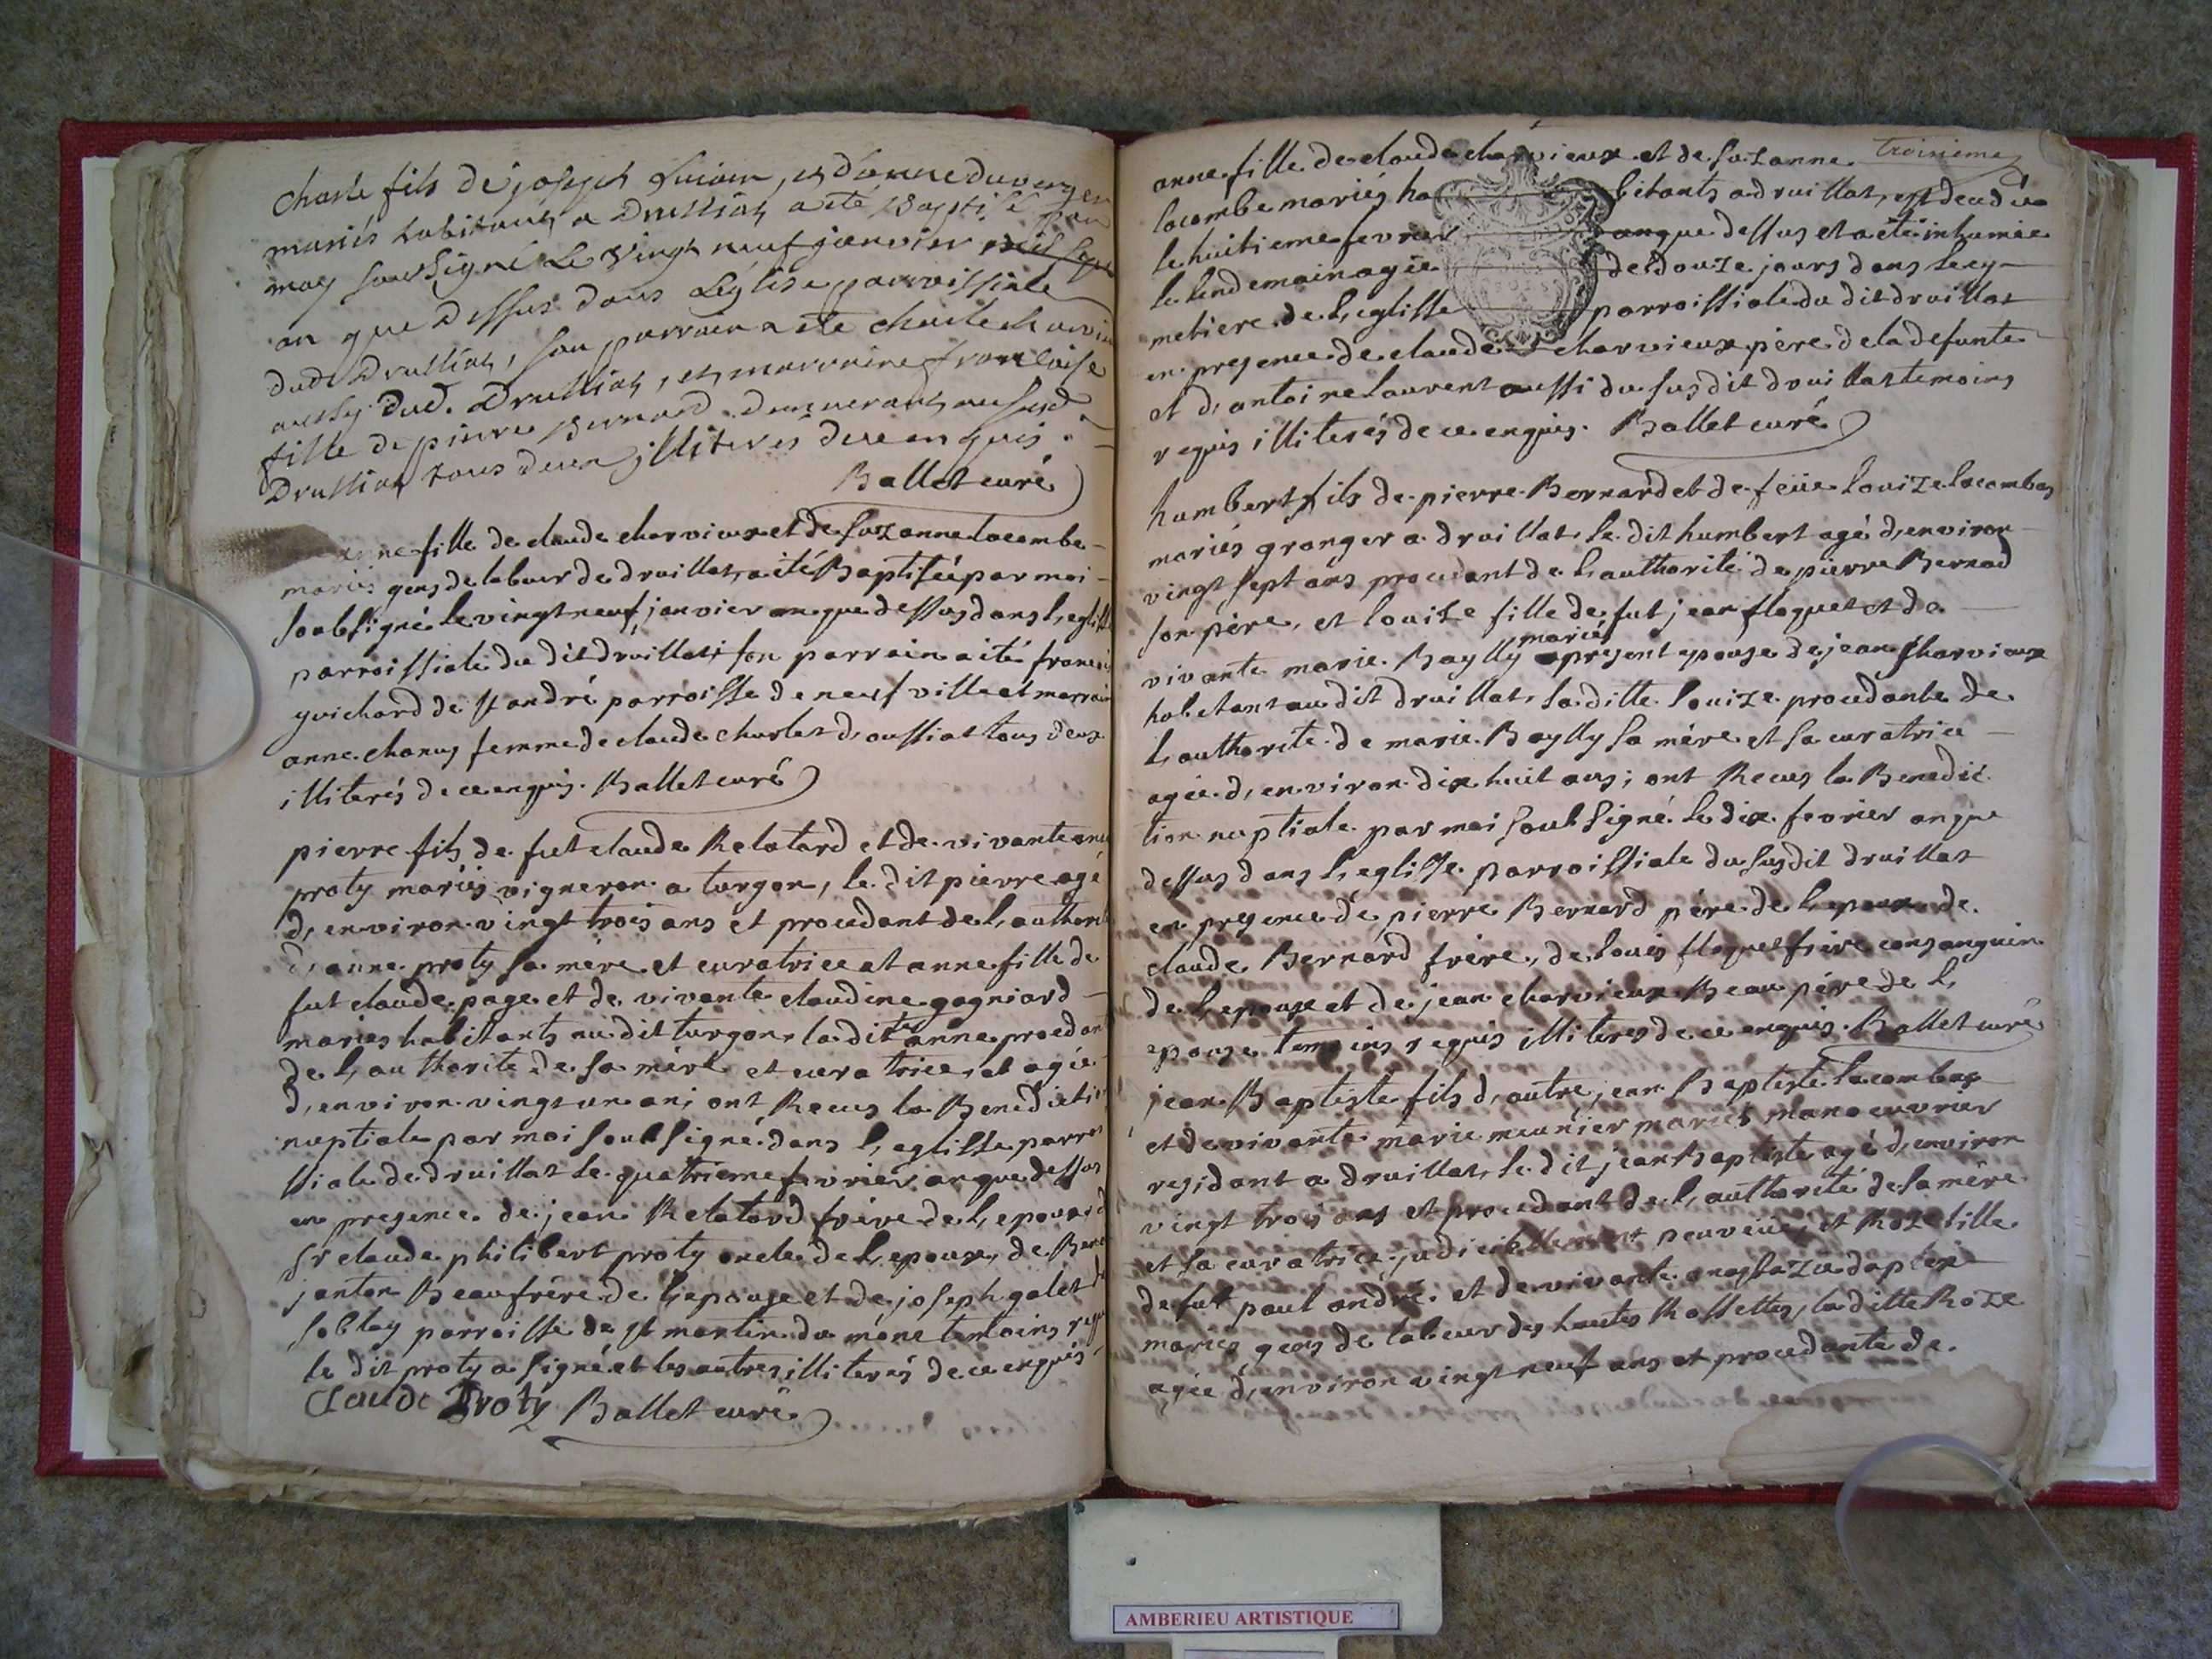 charle fils de joseph et d'anne duverger
mariés habitants a Druillat a été Baptisé par
moy soussigné Le vingt neuf janvier
an que dessus dans L'église parroissiale
dud. Druillat, son parrain a été charle
aussy dud. Druillat, et marraine francoise
fille de pierre Bernard demeurant au susd.
Druillat tous deux illiterés de ce enquis.
Ballet curé
anne fille de claude charvieux et de suzanne lacombe
mariés gens de labeur de druillat, a été Baptisée par moi
soubsigné le vingt neuf janvier an que dessus dans l,eglisse
parroissiale du dit druillat, son parrain a été
guichard de st andré parroisse de neufville et marraine
anne chanus femme de claude charles d, oussiat tous deux
illiterés de ce enquis. Ballet curé
pierre fils de fut claude Relatard et de vivante anne
proty mariés vigneron a turgon, le dit pierre agé
d, environ vingt trois ans et procedant de l, authorité
d, anne proty sa mère et curatrice et anne fille de
fut claude page et de vivante claudine gagniard
mariés habittants au dit turgon, la ditte anne procedant
de l, authorite de sa mère et curatrice, et agée
d, environ vingt un ans ont Recus la Benediction
nuptiale par moi soubsigné dans l, eglisse parrois
siale de druillat le quatrieme fevrier an que dessus
en presence de jean Relatard frère de l, epoux, de
sr claude philibert proty oncle de l, epouse, de
janton Beaufrère de l, epouse et de joseph galet de
soblay parroisse de st martin du mont temoins requis
le dit proty a signé et les autres illiterés de ce enquis
Claude Proty Ballet curé
troisieme
anne fille de claude charvieux et de suzanne
lacombe mariés habitants a druillat, est decedée
le huitieme fevrier an que dessus et a été inhumée
le lendemain agée de douze jours dans le cy
metiere de l, eglisse parroissiale du dit druillat
en presence de claude charvieux père de la defunte
et d, antoine laurent aussi du susdit druillat temoins
requis illiterés de ce enquis. Ballet curé
humbert fils de pierre Bernard et de feüe louize lacombe
mariés granger a druillat, le dit humbert agé d, environ
vingt sept ans procedant de l, authorité de pierre Bernard
son père, et louize fille de fut jean floquet et de
vivante marie Baylly mariés apresent epouse de jean Charvieux
habitant au dit druillat, la ditte louize procedante de
l, authorite de marie Baylly sa mère et sa curatrice
agée d, environ dix huit ans; ont Recus la Benedic
tion nuptiale par moi soubsigné le dix fevrier an que
dessus dans l, eglisse parroissiale du susdit druillat
en presence de pierre Bernard père de l, epoux de
claude Bernard frère, de louis floquet frère consanguin
de l, epouse et de jean charvieux Beau père de l,
epouse temoins requis illiterés de ce enquis. Ballet curé
jean Baptiste fils d, autre jean Baptiste lacombe
et de vivante marie meunier mariés manoeuvrier
residant a druillat, le dit jean Baptiste agé d, environ
vingt trois ans et procedant de l, authorité de sa mère
et sa curatrice judiciellement pourvëüe, et Roze fille
de fut paul andré et de vivante
mariés gens de labeur des hautes Rossettes, la ditte Roze
agée d, environ vingt neuf ans et procedante de
AMBERIEU ARTISTIQUE